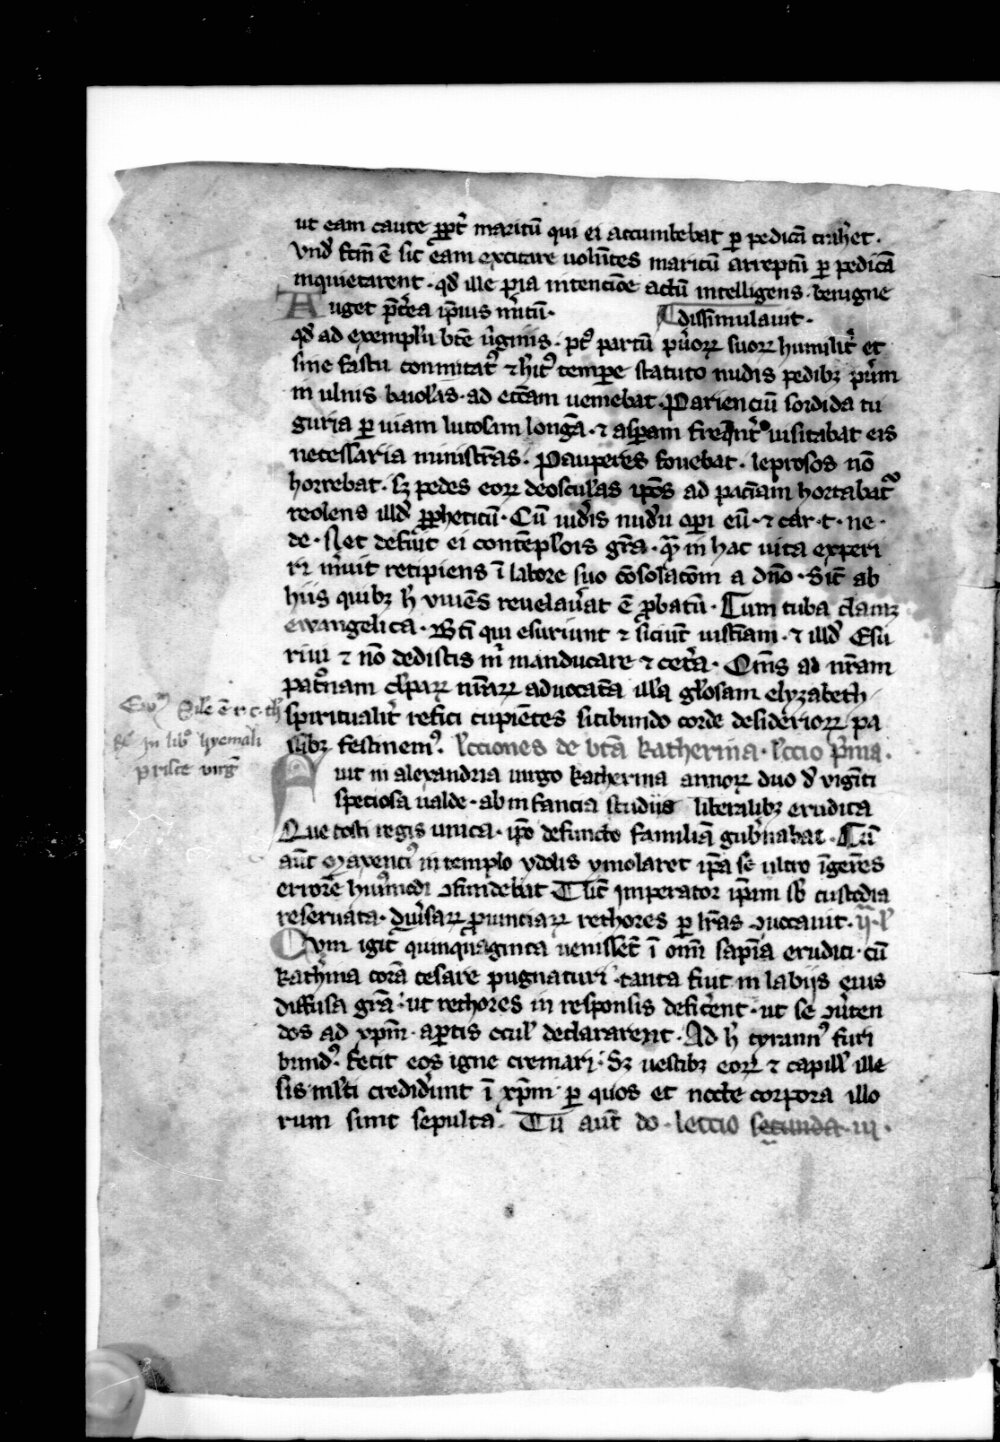 ut eam caute ꝓpt̾ maritū qui ei accumbebat ꝑ pedicā trah̾et ·
vnd̾ fc̄m ē sic eam excitare uolūtes maritū arreptū ꝑ pedicā
inquietarent · qd̾ ille ꝓia intencōe actū intelligens · benigne
Auget p̄t̾ea ip̄ius m̄itū ·
dissimulauit ·
qd̾ ad exemplū bt̄e u̾ginis · pꝰ partū pu̾oꝝ suoꝝ humilit̾ et
sine fastu conmitatꝰ ⁊ h̾itꝰ tempore statuto nudis pedibꝫ pu̾m
in ulnis baiolās · ad ecc̄am ueniebat · Parienciū sordida tu
guria ꝑ uiam lutosam longā · ⁊ asꝑam freqn̄t̾ uisitabat eis
necessaria ministrās · Pauperes fouebat · leprosos nō
horrebat · sꝫ pedes eoꝝ deosculās ip̄os ad paciam hortabatᷣ
reolens illd̾ ꝓpheticū · Cū uid̾is nudū oꝑi eū · ⁊ car · t · ne ·
de · N et defuit ei contēplōis gr̄a · qm̄ in hac uita experi
ri m̾uit recipiens ī labore suo cōsolacōm a dn̄o · Sic̄ ab
hiis quibꝫ h̾ viuēs reuelau̾at ē ꝓbatū · Cum tuba clamꝫ
ewangelica · Bt̄i qui esuriunt ⁊ siciūt iusticiam · ⁊ illd̾ Esu
riui ⁊ nō dedistis m̾ manducare ⁊ cet̾a · Om̄s ad nr̄am
patꝰnam aduocatā illā glōsam elyzabeth
spiritualit̾ refici cupiētes sitibundo corde desiderioꝝ pa
ssibꝫ festinemꝰ · lcciones de btā katherina · lccio p̾ma ·
Fuit in alexandria uirgo katherina annoꝝ duo d̾ viginti
speciosa ualde · ab infancia studiis liberalibꝫ erudita
Que costi regis unica · ip̄o defuncto familiā gub̾nabat · Cū
aūt Maxenciꝰ in templo ydolis ymolaret ip̄a se ultro īgerēs
errorē huiꝰmodi ꝯfundebat Tūc imperator ip̄am sb̾ custodia
reseruata · diu̾saꝝ ꝓuinciaꝝ rethores ꝑ lr̄as ꝯuocauit · ij · l̾
Cvm igit̾ quinquaginta uenissēt ī om̄i sapīa eruditi · cū
kath̾ina corā cesare pugnaturi · tanta fuit in labijs eius
diffusa gr̄a · ut rethores in responsis defic̾ent · ut se ꝯu̾ten
dos ad xp̄m · aꝑtis ocul̾ declararent · Ad h̾ tyrannꝰ furi
bundꝰ · fecit eos igne cremari · Sꝫ uestibꝫ eoꝝ ⁊ capill̾ ille
sis · ml̾ti credid̾unt ī xp̄m · ꝑ quos et nocte corpora illo
rum sunt sepulta · Tu aūt do · leccio secunda · iij ·
in libꝰ hyemali
prisce virgīs